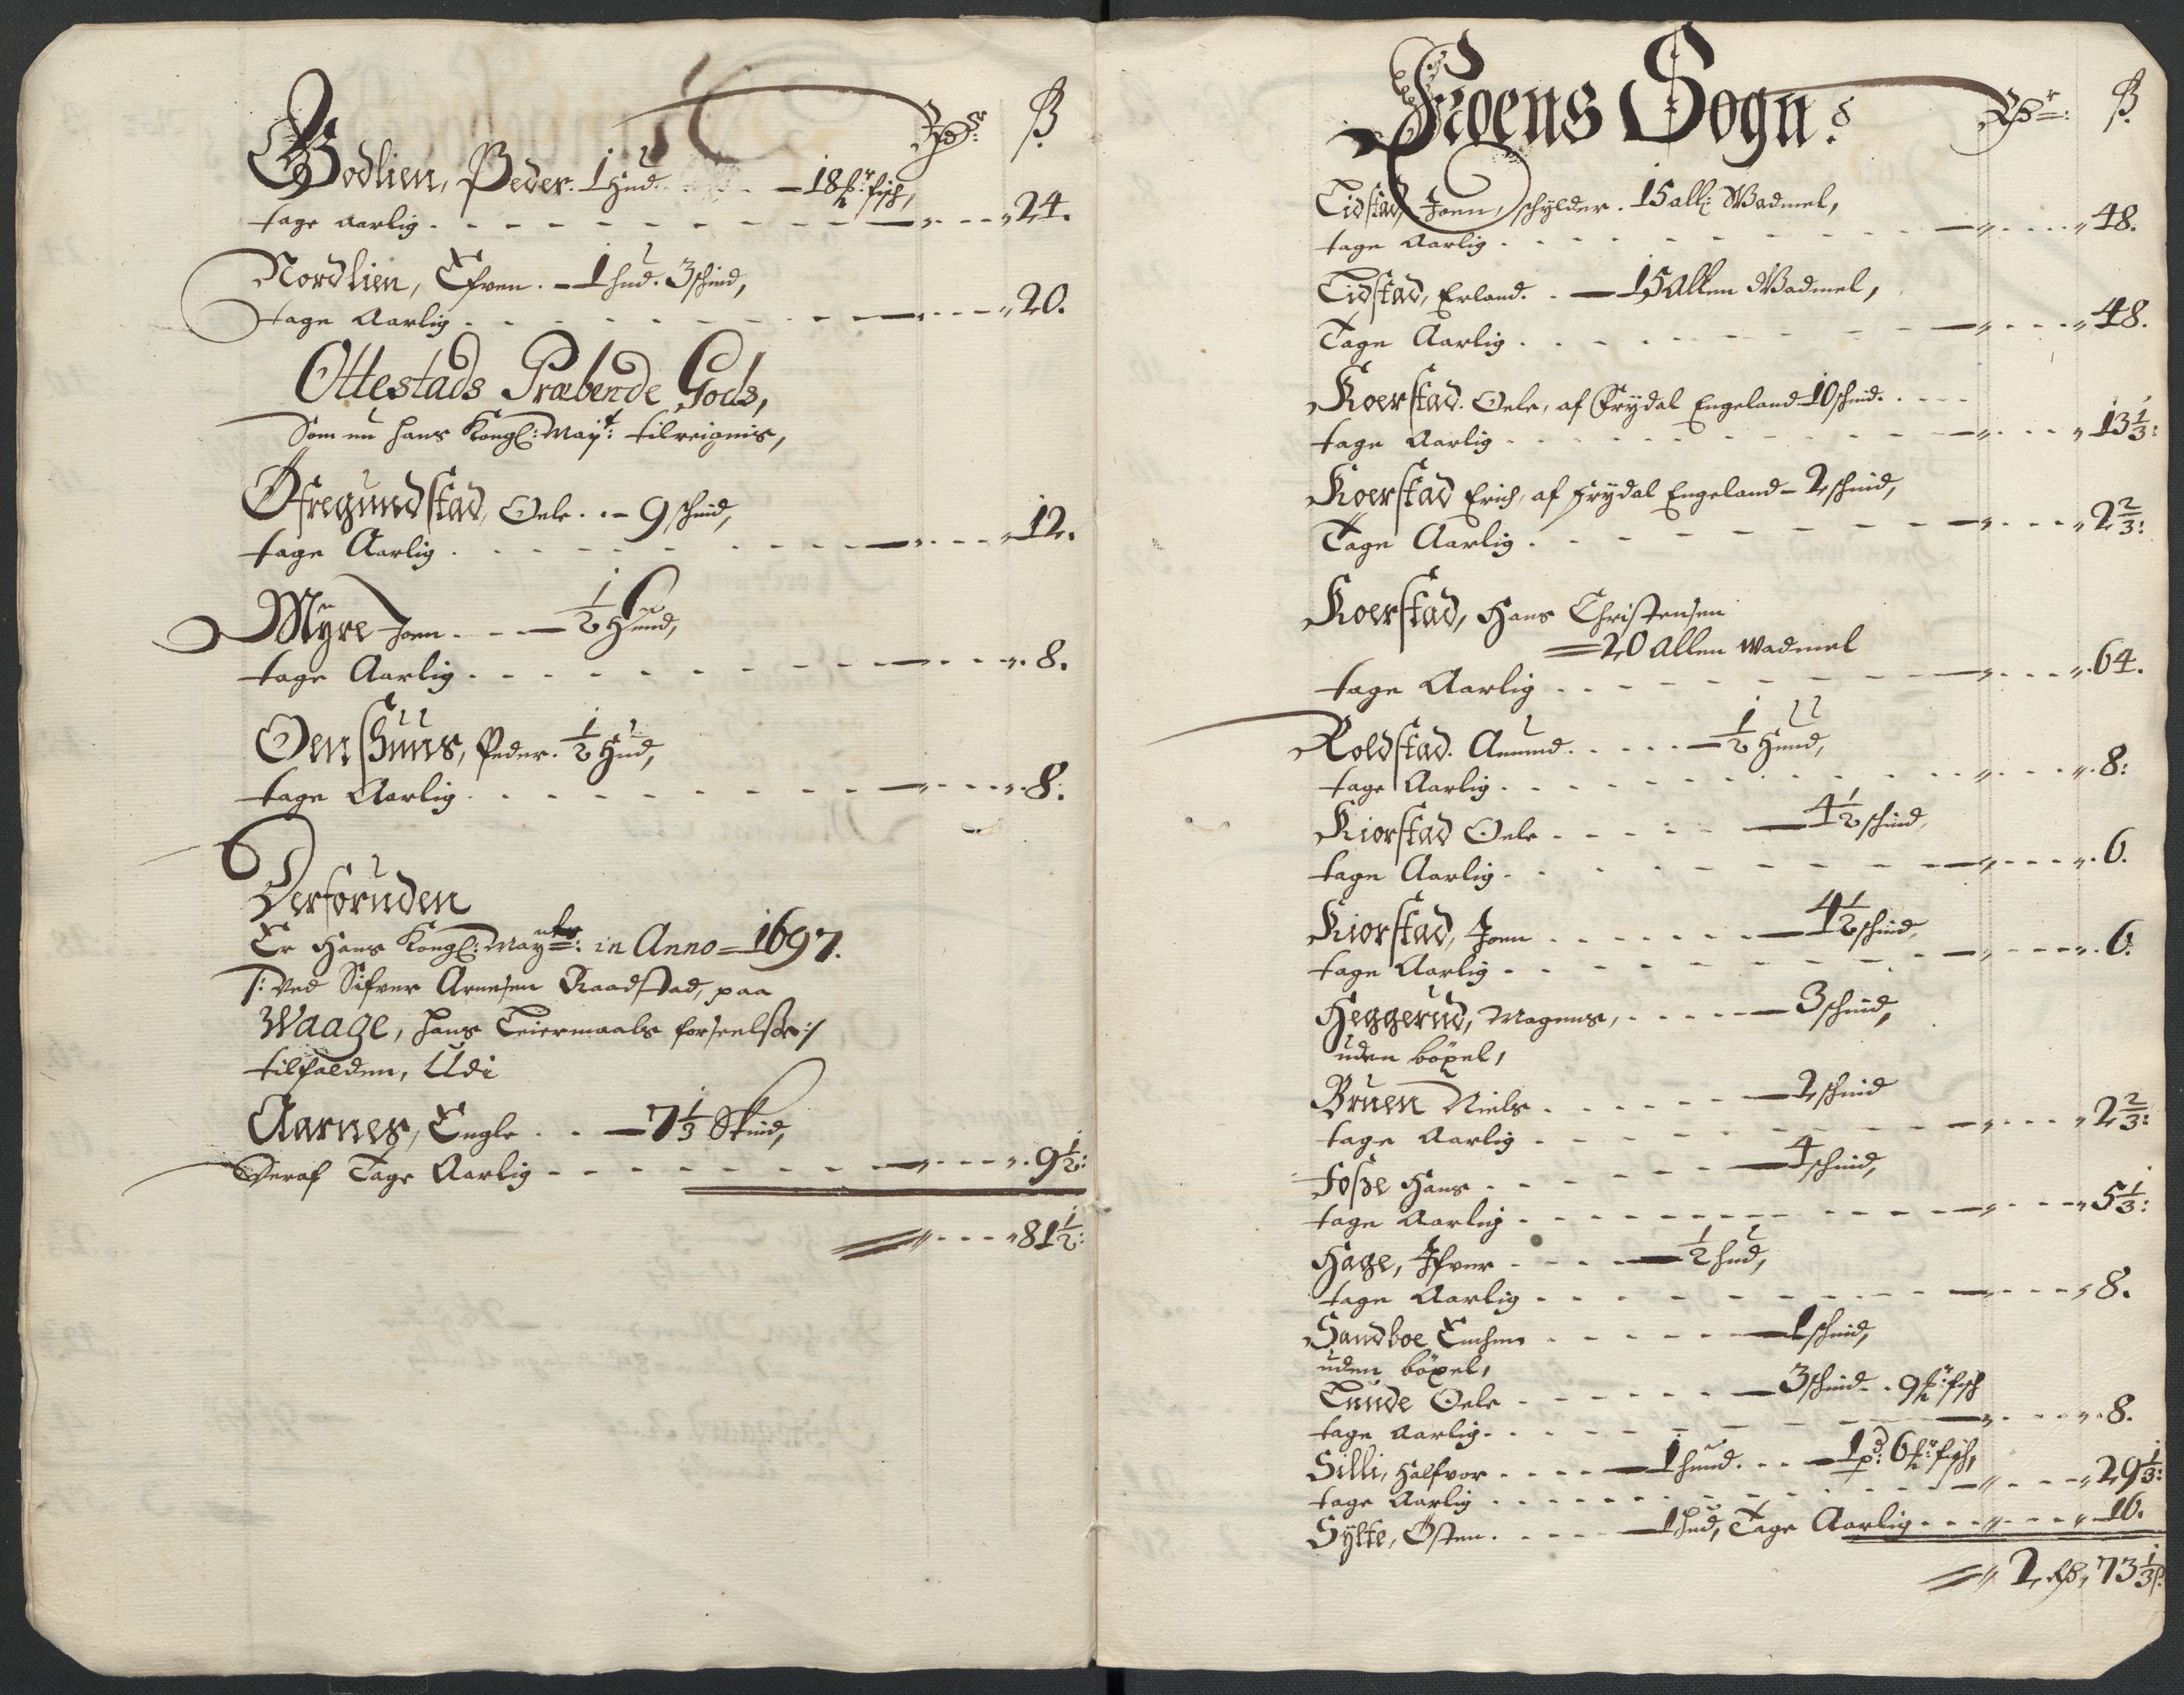 Rdr: ß.
Godlien, Peder. 1 hud. - 18 fisch,
tage aarlig - 24.
Nordlien, Efven. - 1 hud. 3 schind,
tage Aarlig - 20.
Ottestads Præbende Gods,
Som nu hans Kongl: Mayt: tilreignis,
Øfregundstad, Oele. - 9 schind,
tage Aarlig - 12.
Myre Joen - ½ Huud,
tage Aarlig - 8.
Oenshuus, Peder. ½ Hud,
tage Aarlig - 8.
Derforuden
Er Hans Kongl: Mayts: in Anno 1697.
/: Ved Sifver Arnesen Raadstad, paa
Waage, hans Leiermaals forseelsse :/
tilfalden, Udi
Aarnes, Engle - 7⅓ Skind,
Deraf Tage Aarlig - 9½:
81½:
Froens Sogn: Rdr: ß.
Tidstad Joen, schylder. 15 all: Wadmel,
tage Aarlig - 48.
Tidstad, Erland. - 15 Allen Wadmel,
Tage Aarlig - 48.
Koerstad. Oele, af Frydal Engeland 10 schind.
tage Aarlig - 13⅓:
Koerstad Erich, af Frydal Engeland - 2 schind,
Tage Aarlig - 2⅔:
Koerstad, Hans Christensen
20 Allen wadmel
tage Aarlig - 64.
Roldstad. Amund - ½ Huud,
tage Aarlig - 8:
Kiorstad Oele - 4½ schind,
tage Aarlig - 6.
Kiorstad, Joen - 4½ schind,
tage Aarlig - 6.
Heggerud, Magnus, - 3 schind,
uden böxel,
Bruen Niels - 2 schind
tage Aarlig - 2⅔:
Fosse Hans - 4 schind,
tage Aarlig - 5⅓:
Hage, Ifver - ½ hud,
tage Aarlig - 8.
Sandboe - 1 schind,
uden böxel,
Tunde Oele - 3 schind. 9 fisch
tage Aarlig - 8.
Silli, Halfvor - 1 huud. - 1 pd: 6 fisch,
tage Aarlig - 29⅓:
Sylte, Östen. - 1 hud, Tage Aarlig - 16.
2 Rd, 73⅓ ß.